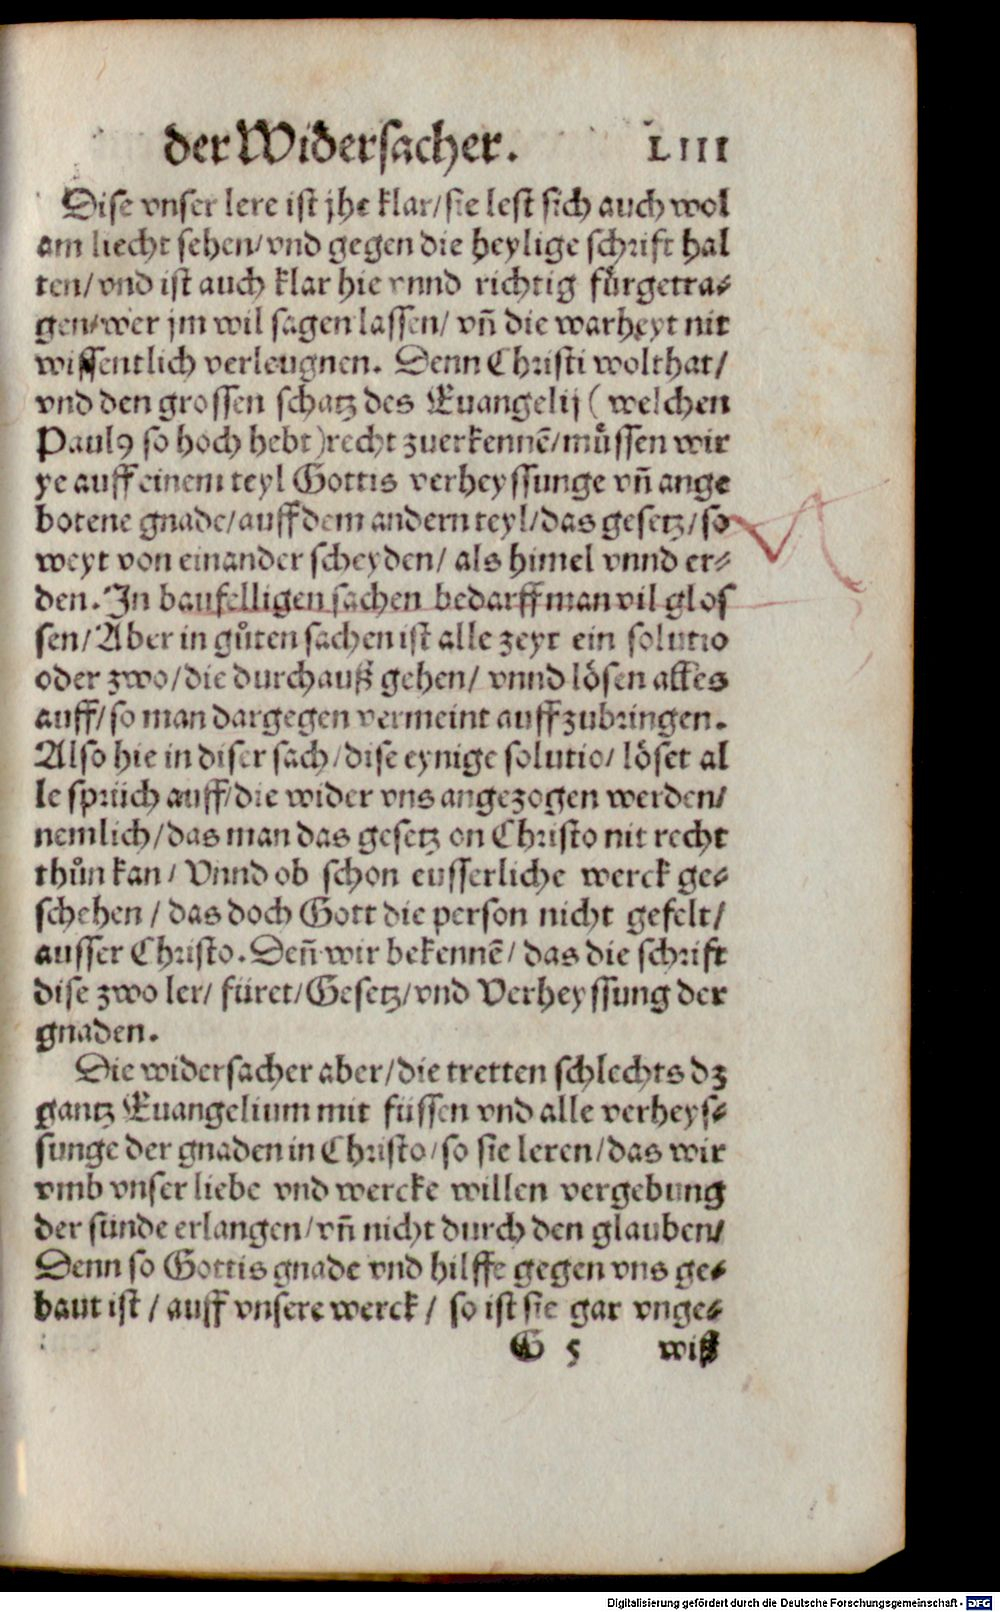 der Widersacher. LIII
Dise vnser lere ist jhe klar/sie lest sich auch wol
am liecht sehen/vnd gegen die heylige schrift hal
ten/vnd ist auch klar hie vnnd richtig fürgetra⸗
gen/wer jm wil sagen lassen/ vñ die warheyt nit
wissentlich verleugnen. Denn Christi wolthat/
vnd den grossen schatz des Euangelij ( welchen
Paulꝰ so hoch hebt )recht zuerkennē/muͤssen wir
ye auff einem teyl Gottis verheyssunge vñ ange
botene gnade/auff dem andern teyl/das gesetz/so
weyt von einander scheyden/ als himel vnnd er⸗
den. In baufelligen sachen bedarff man vil glos
sen/Aber in guͦten sachen ist alle zeyt ein solutio
oder zwo/die durchauß gehen/ vnnd loͤsen alles
auff/so man dargegen vermeint auffzubringen.
Also hie in diser sach/dise eynige solutio/ loͤset al
le sprüch auff/die wider vns angezogen werden/
nemlich/das man das gesetz on Christo nit recht
thuͦn kan/ Vnnd ob schon eusserliche werck ge⸗
schehen / das doch Gott die person nicht gefelt/
ausser Christo. Deñ wir bekennē/ das die schrift
dise zwo ler/ füret/Gesetz/vnd Verheyssung der
gnaden.
Die widersacher aber/die tretten schlechts dz
gantz Euangelium mit füssen vnd alle verheys⸗
sunge der gnaden in Christo/so sie leren/das wir
vmb vnser liebe vnd wercke willen vergebung
der sünde erlangen/vñ nicht durch den glauben/
Denn so Gottis gnade vnd hilffe gegen vns ge⸗
baut ist / auff vnsere werck / so ist sie gar vnge⸗
G 5 wiß
Digitalisierung gefördert durch die Deutsche Forschungsgemeinschaft - DFG